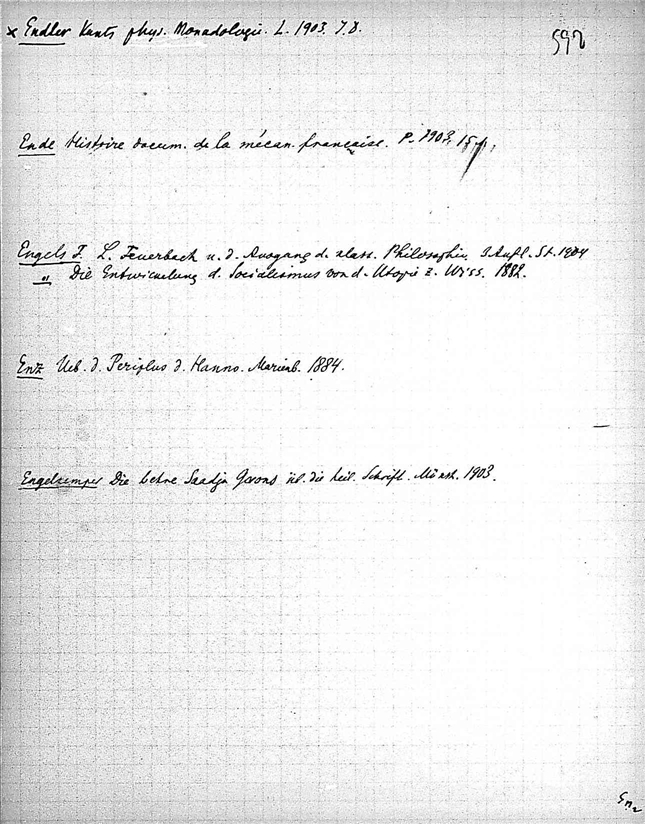 × Endler Kants phys. Monadologie. L. 1903. I.D.
592
Ende Histoire docum. de la mécan. française. P. 1903.
Engels F. L. Feuerbach u. d. Ausgang d. klass. Philosophie. 3 Aufl. St. 1904
" Die Entwickelung d. Socialismus von d. Utopie z. Wiss. 1882.
Enz Ueb. d. Periplus d. Hanno. Marienb. 1884.
Engelkemper Die Lehre Saadja Gaons üb. die heil. Schrift. Münst. 1903.